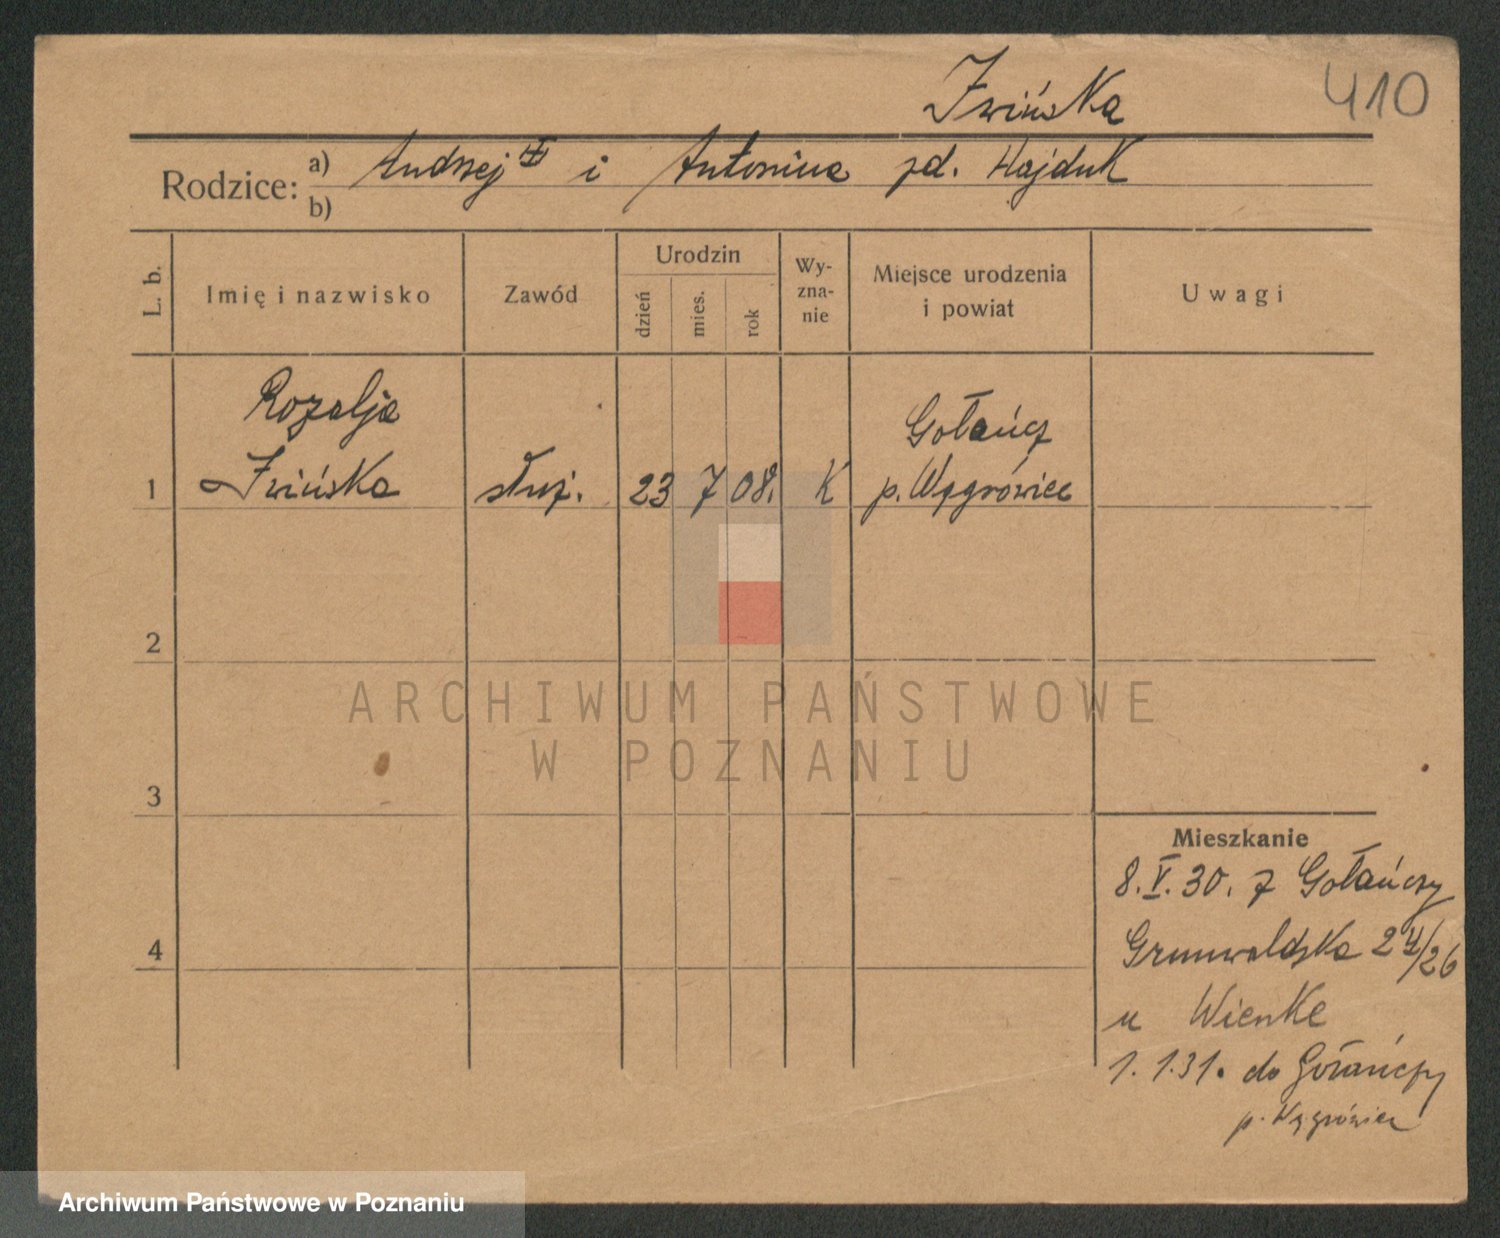 Iwińska
410
Rodzice:
a) Andrzej i Antonina zd. Hajduk
b)
L. b.
Imię i nazwisko
Zawód
Urodzin
dzień
mies.
rok
Wy-
zna-
nie
Miejsce urodzenia
i powiat
Uwagi
Rozalja
Gołańcz
1 Iwińska służ. 23 7 08. K p. Wągrówiec
2
3
4
Mieszkanie
8.V.30. z Gołańczy
Grunwaldzka 24/26
u Wienke
1.1.31. do Gołańczy
p. Wągrówiec
ARCHIWUM PAŃSTWOWE
W POZNANIU
Archiwum Państwowe w Poznaniu